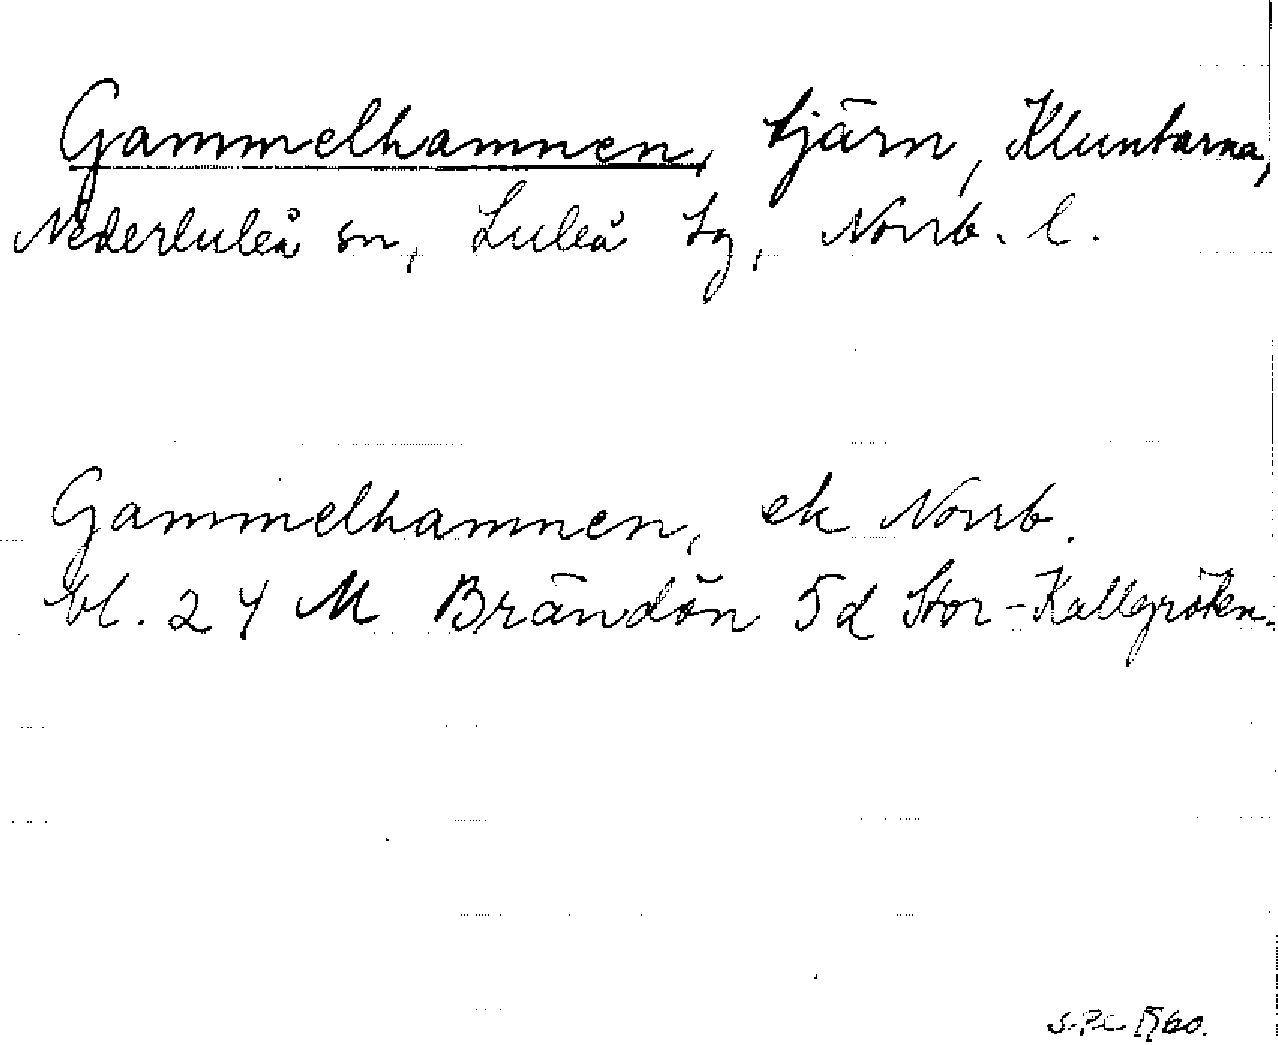 Gammelhamnen, tjärn, Kluntarna,
Nederluleå sn, Luleå tg, Norrb. l.
Gammelhamnen, ek Norrb.
bl. 24 M Brändön 5d Stor-Kallgrötan.